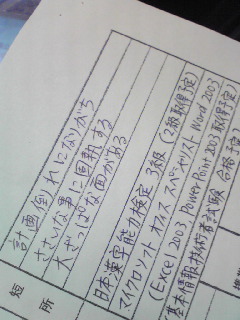 計画倒れになりがち
ささいな事に固執する
大ざっぱな面がある
短所
日本漢字能力検定 3級 (2級取得予定)
マイクロソフト オフィス スペシャリスト Word 2003
(Excel 2003, PowerPoint 2003 取得予定)
基本情報技術者試験 合格予定